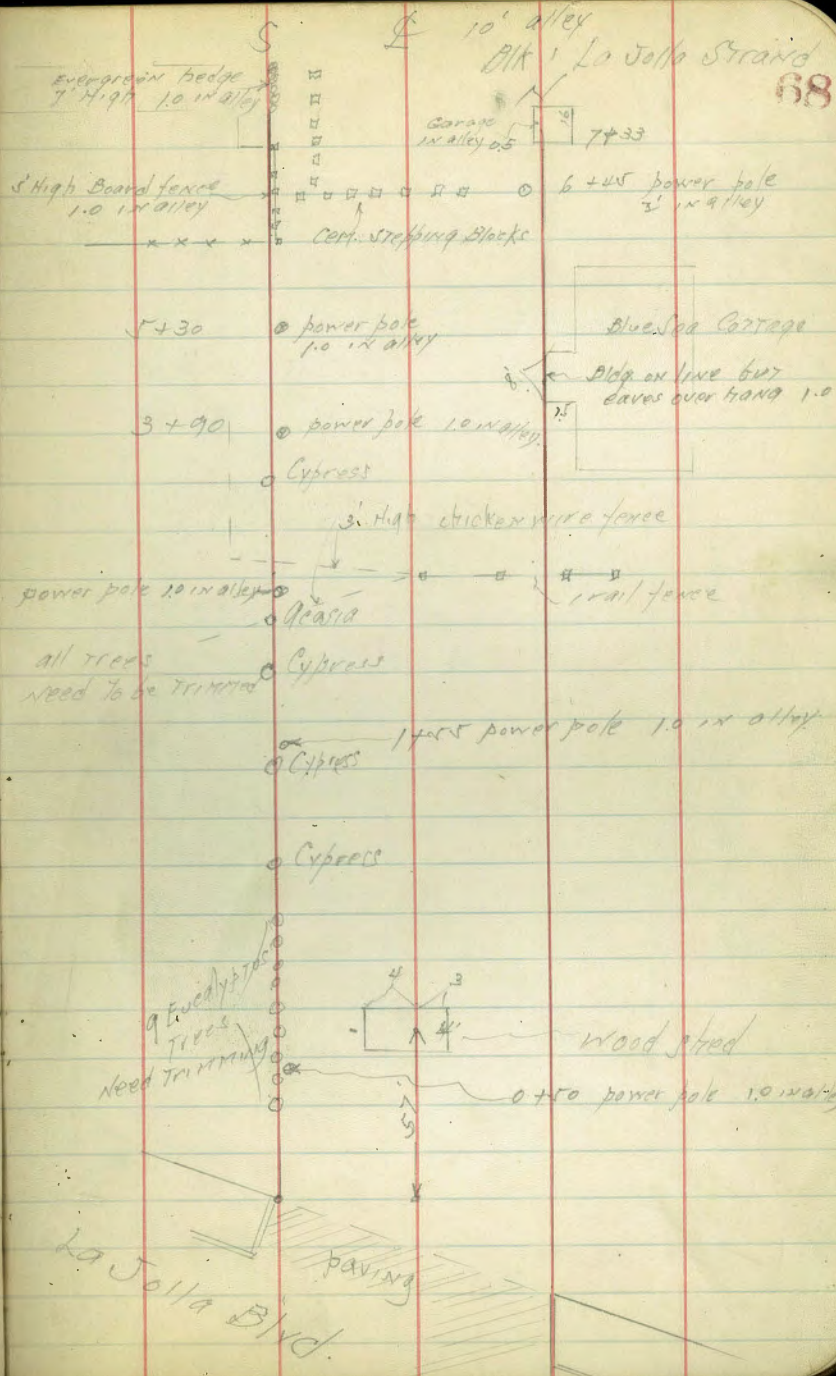 S
℄
10' alley
Blk 1 La Jolla Strand
68
Evergreen hedge
7' High 1.0 in alley
Garage
in alley 0.5
16
7+33
5' High Board fence
1.0 in alley
6+45 power pole
3' in alley
Cem. Stepping Blocks
5+30
power pole
1.0 in alley
Blue Sea Cottage
8'
Bldg on line but
eaves over hang 1.0
3+90
power pole 1.0 in alley.
Cypress
3' High chicken wire fence
power pole 1.0 in alley
1 rail fence
Acasia
all trees
Need To be Trimmed
Cypress
1+55 power pole 1.0 in alley
Cypress
Cypress
9 Eucalyptos
Trees
Need Trimming
4
3
4'
Wood shed
0+50 power pole 1.0 in alley
57.
La Jolla Blvd.
paving